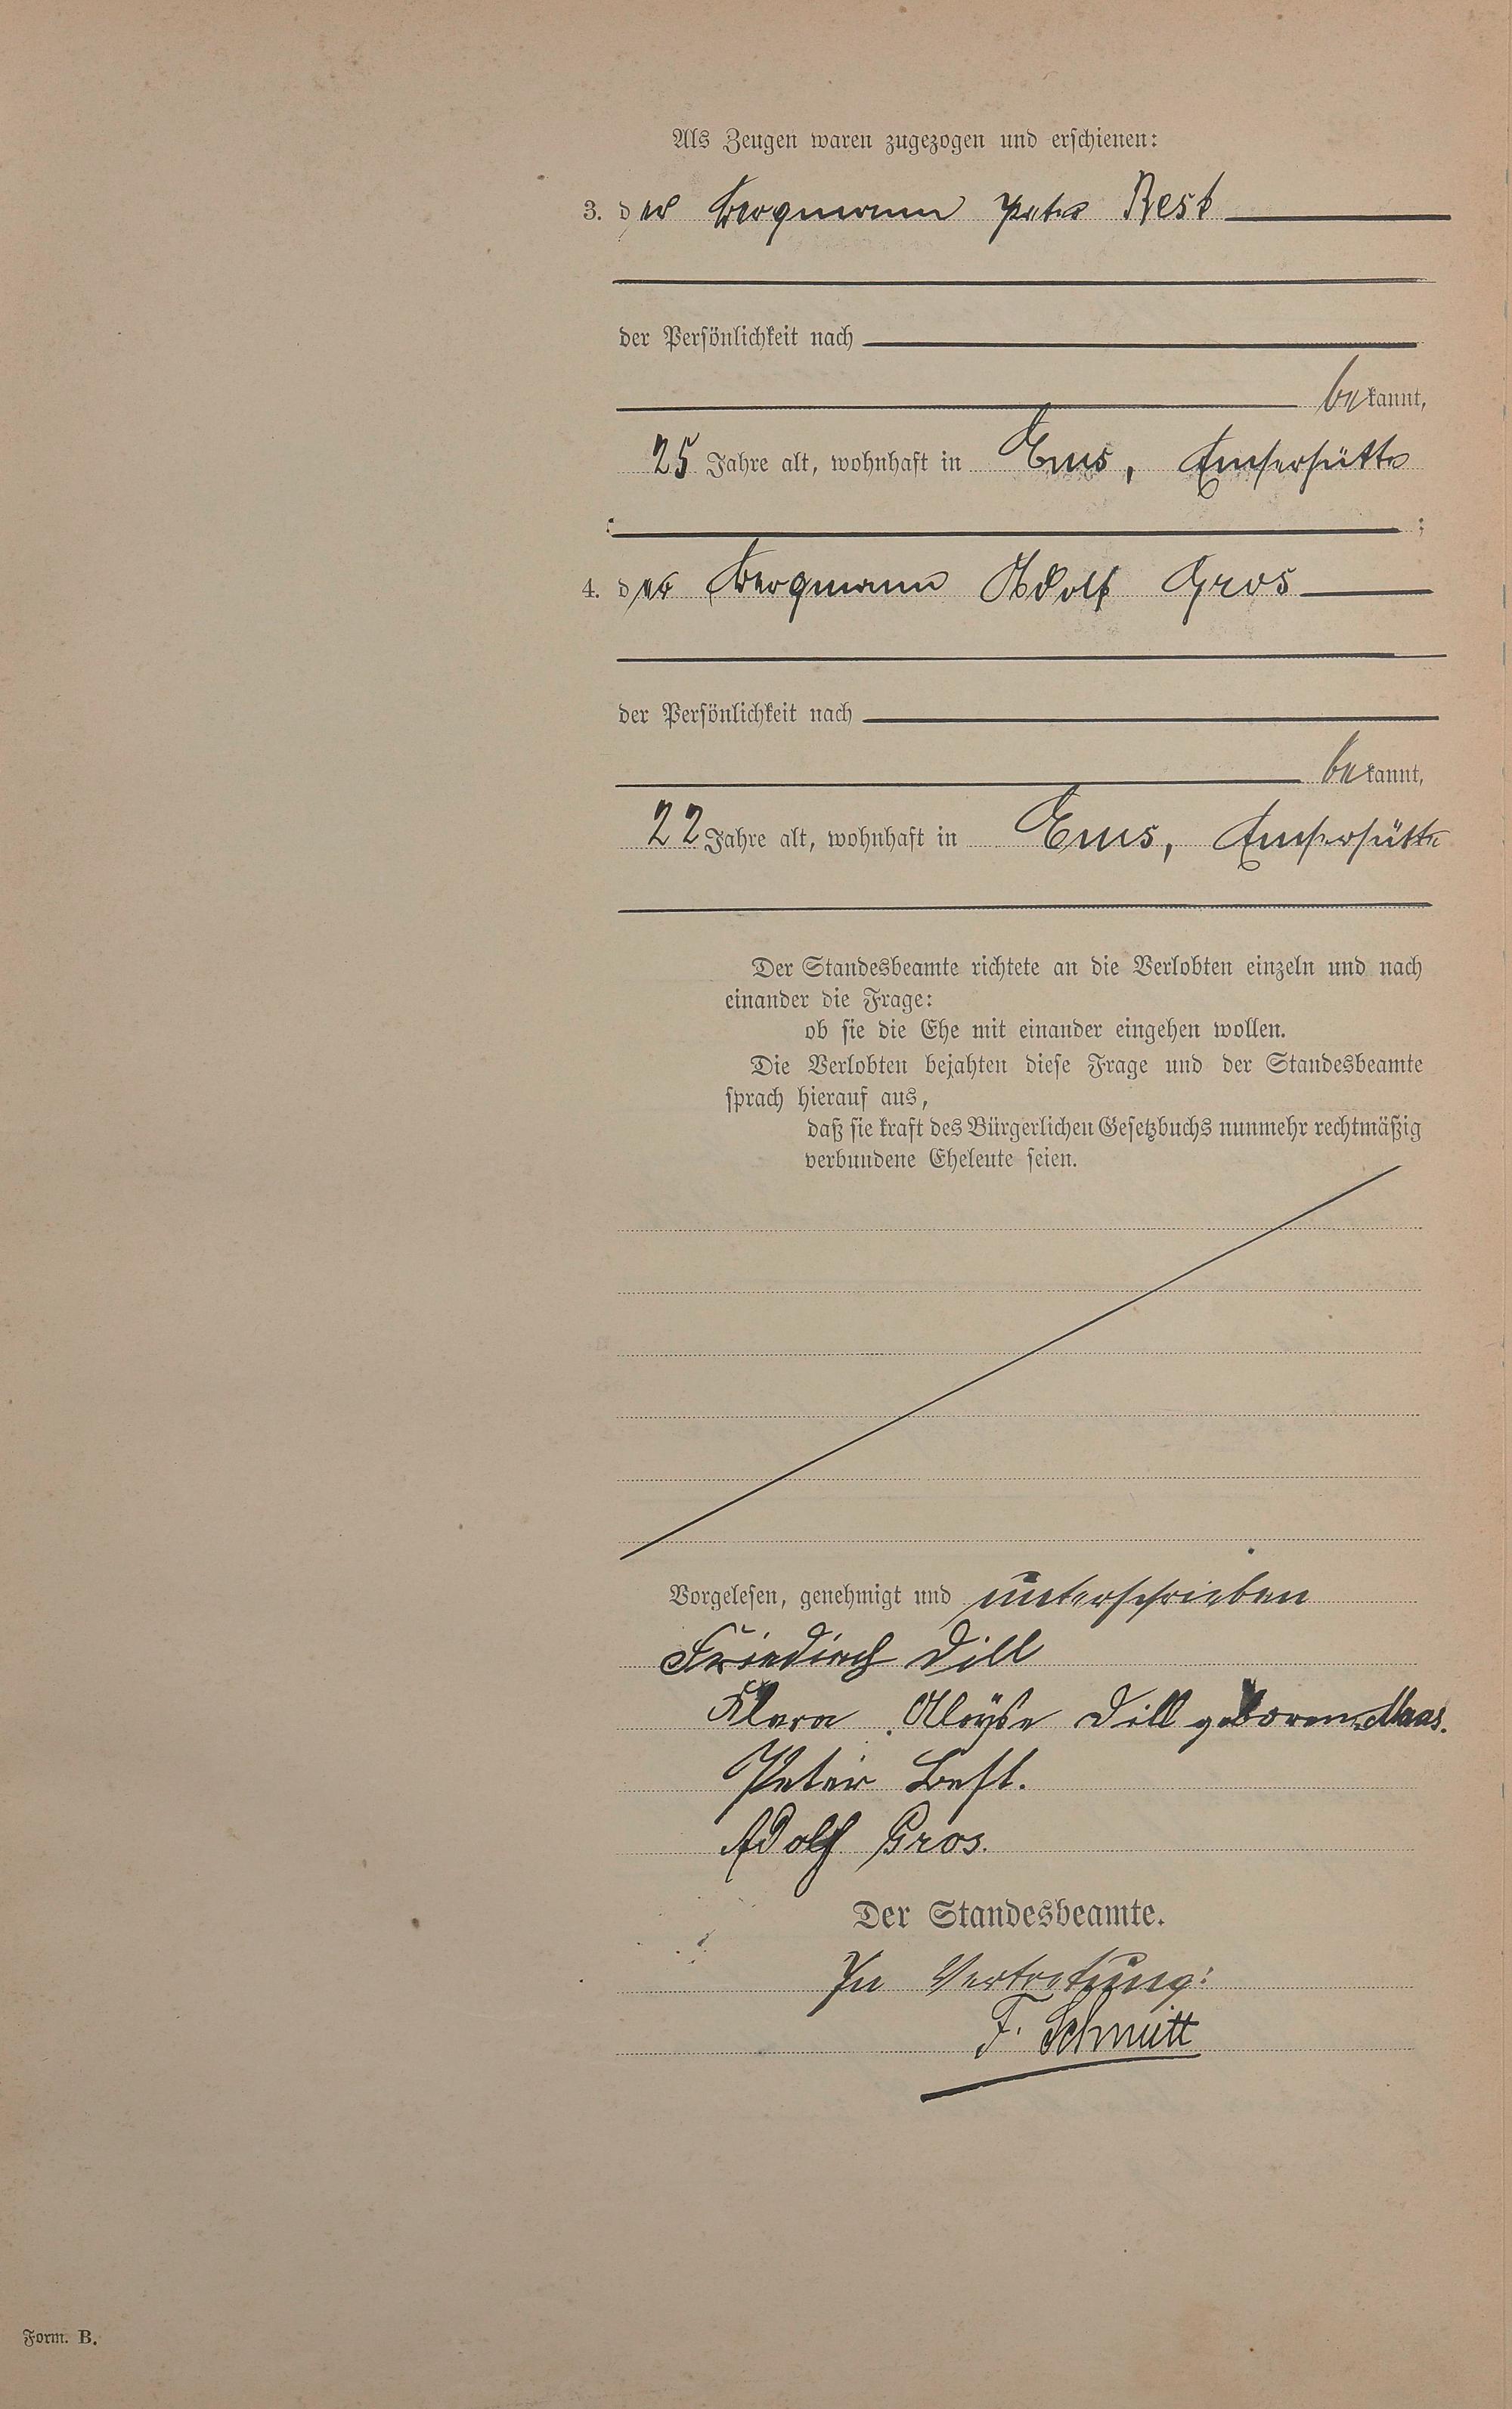 Als Zeugen waren zugezogen und erschienen:
3. der Bergmann Peter Best
der Persönlichkeit nach
bekannt,
25 Jahre alt, wohnhaft in Ems, Emserhütte
;
4. der Bergmann Adolf Gros
der Persönlichkeit nach
bekannt,
22 Jahre alt, wohnhaft in Ems, Emserhütte
Der Standesbeamte richtete an die Verlobten einzeln und nach
einander die Frage:
ob sie die Ehe mit einander eingehen wollen.
Die Verlobten bejahten diese Frage und der Standesbeamte
sprach hierauf aus,
daß sie kraft des Bürgerlichen Gesetzbuchs nunmehr rechtmäßig
verbundene Eheleute seien.
Vorgelesen, genehmigt und unterschrieben
Friedrich Dill
Klara Dill geborene Maas.
Peter Best.
Adolf Gros.
Der Standesbeamte.
In Vertretung:
F. Schmitt
Form. B.